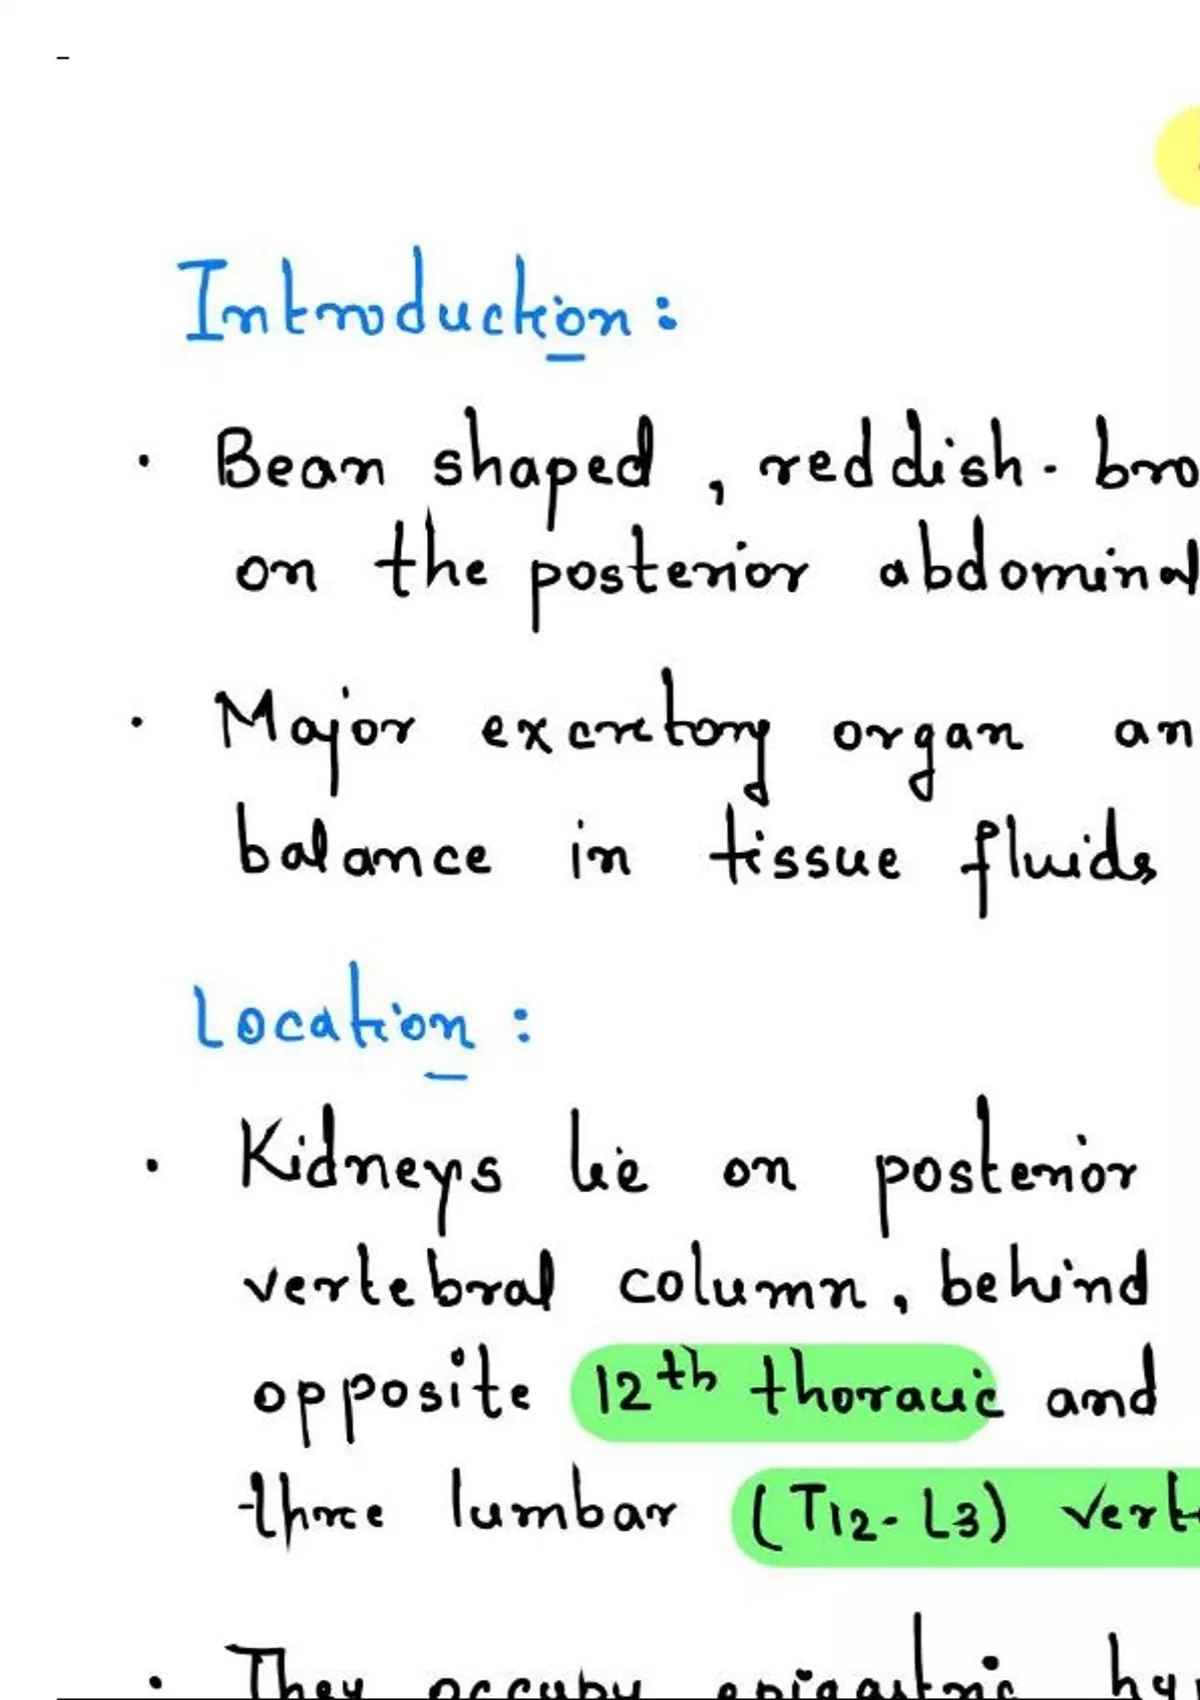 -
Introduction:
· Bean shaped, reddish-bro
on the posterior abdominal
· Major excretory organ an
balance in tissue fluids
Location:
· Kidneys lie on posterior
vertebral column, behind
opposite 12th thoracic and
three lumbar (T12-L3) vert
· They occupy epigastric hy